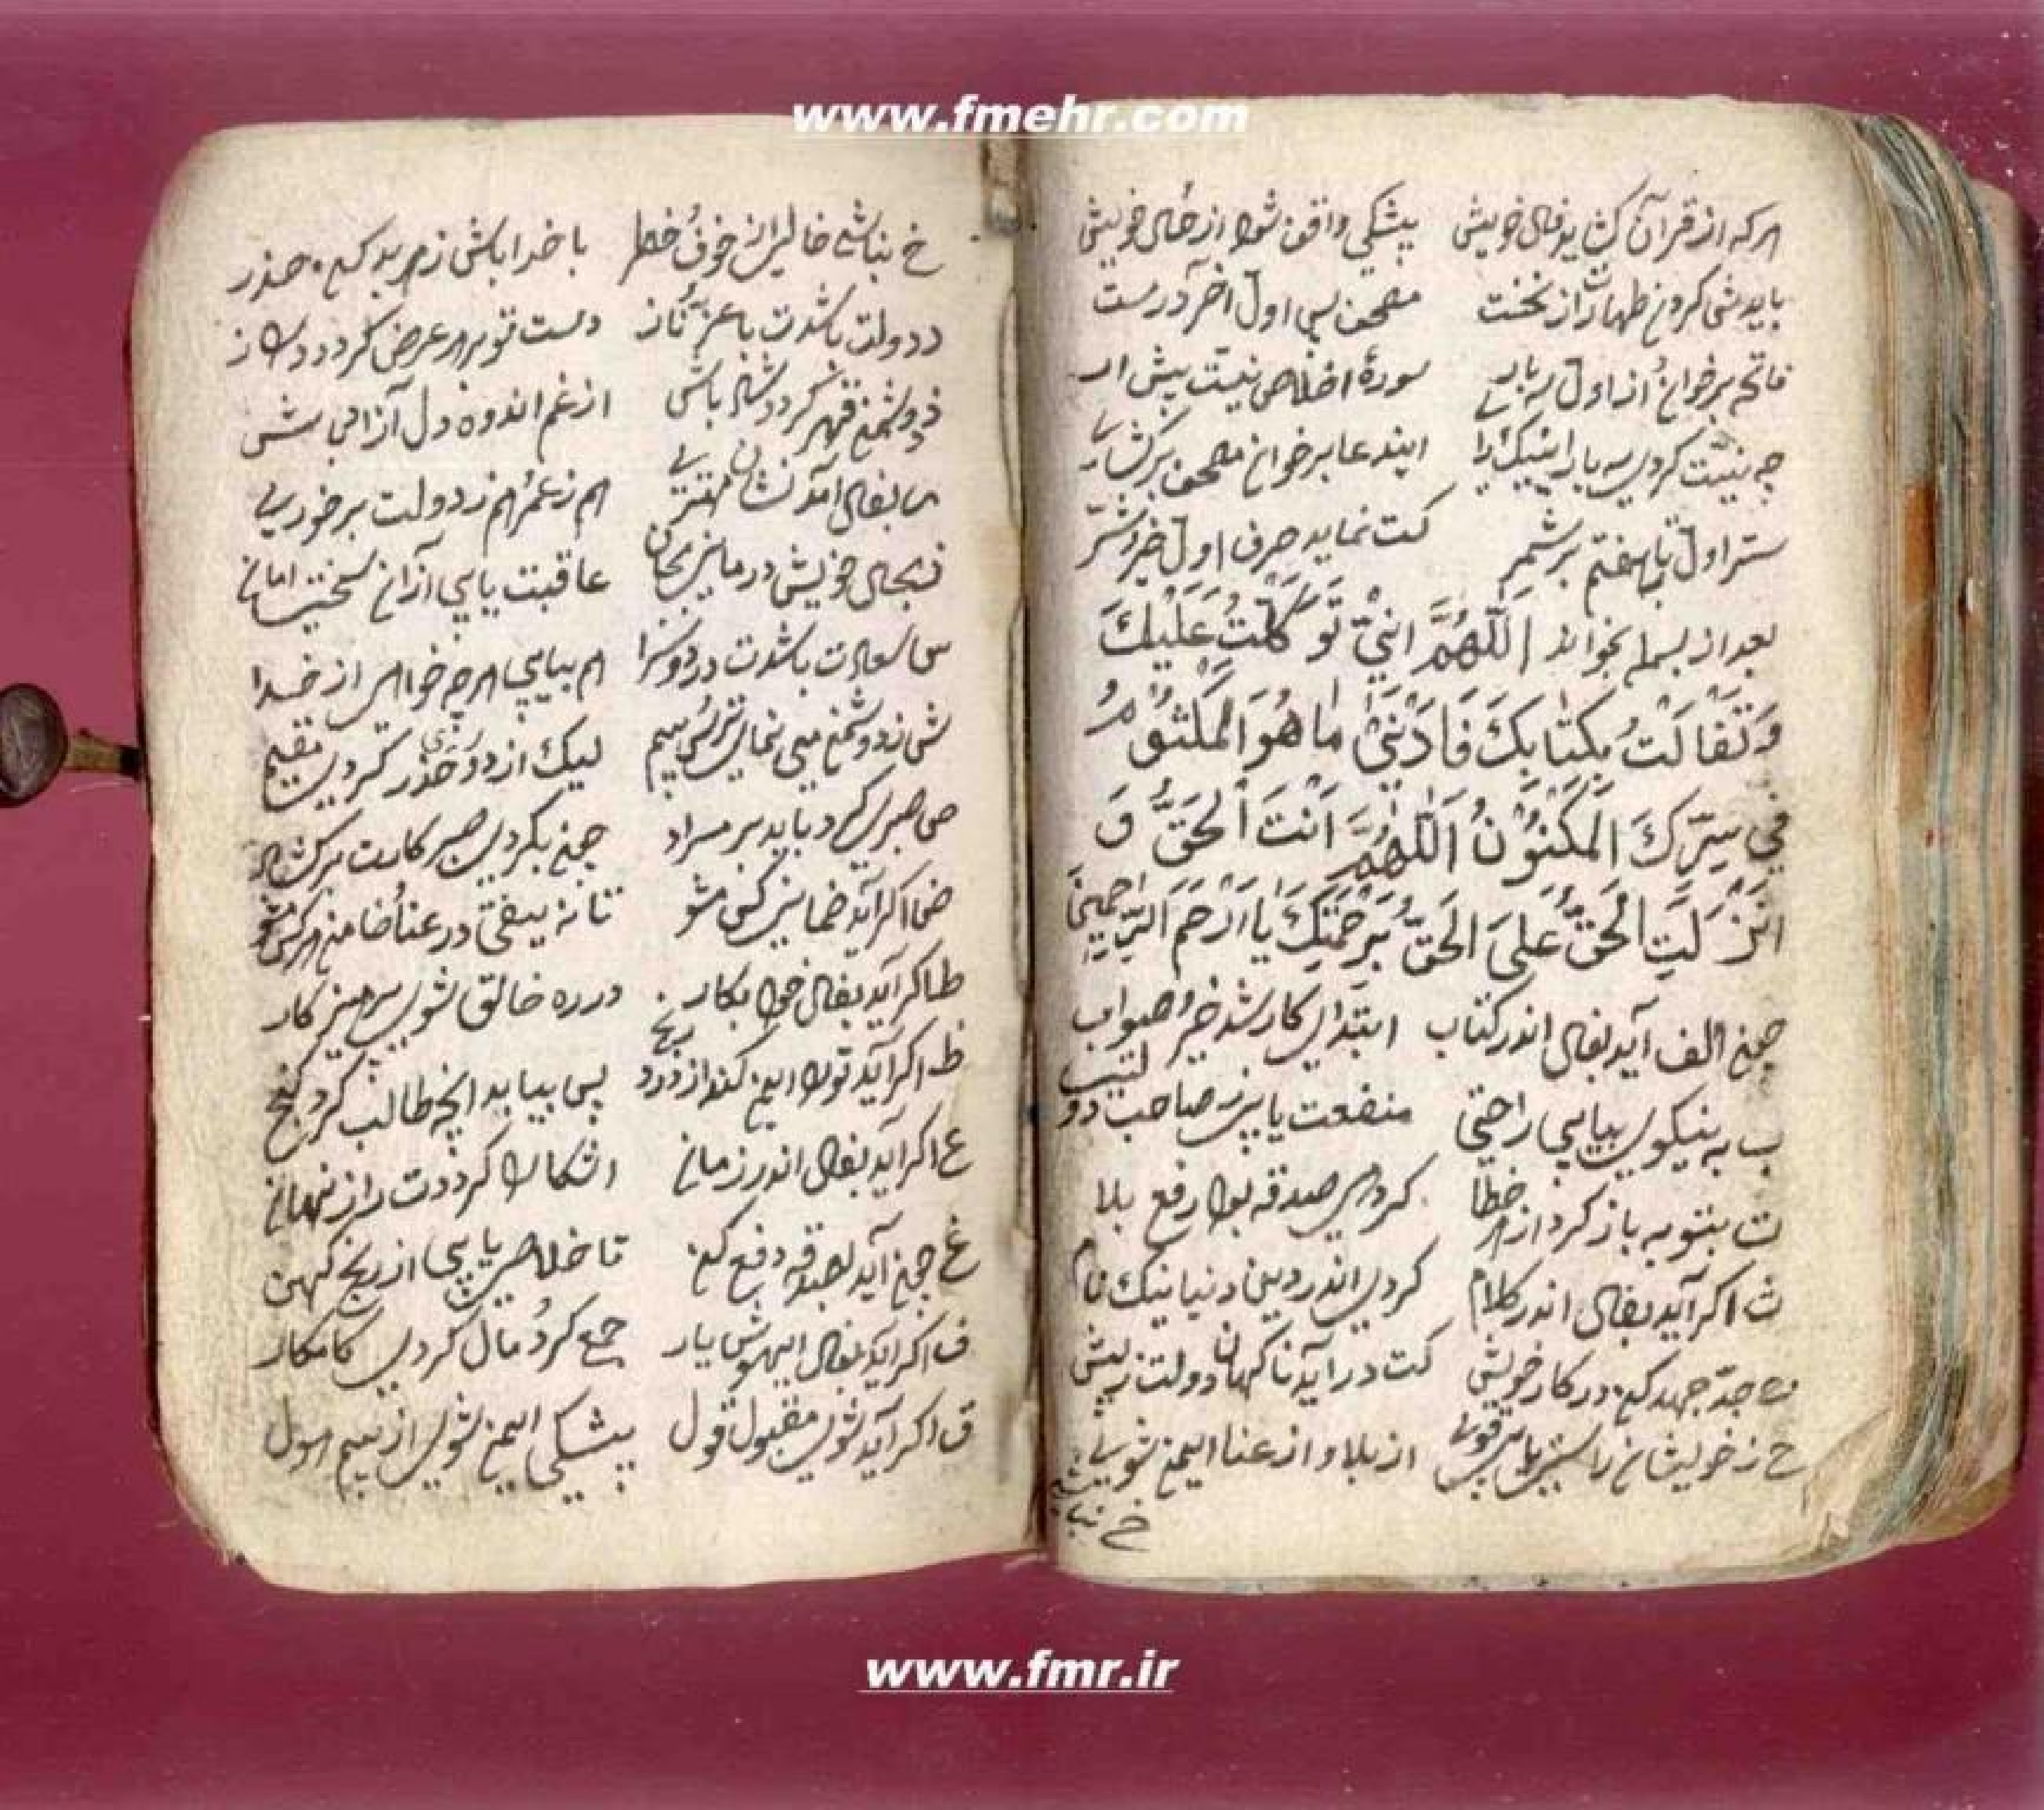 www.fmehr.com
هر که از قرآن گشاید فال خویش بیشکی واقف شود از حال خویش
باید ش کردن طهارت از نخست مصحف بی اول آخر درست
فاتحه برخواند از اول سه بار سوره اخلاص نیت پیش ار
چه نیت کردی سه بار اینک را ایندعا برخوان مصحف برکشای
سَتر اول تا بهفتم برشمر کت نماید حرف اول خیر و شر
بعد از بسمله بخواند اَللّٰهُمَّ اِنّیْ تَوَکَّلْتُ عَلَیْكَ
وَ تَفَاَلْتُ بِکِتَابِكَ فَاَرِنیْ مٰا هُوَ الْمَکْتُوْمُ
فِی سِرِّكَ الْمَکْنُوْنُ اَللّٰهُمَّ اَنْتَ الْحَقُّ وَ
اَنْزَلْتَ الْحَقُّ عَلَی الْحَقُّ بِرَحْمَتِكَ یٰا اَرْحَمَ الرّٰحِمِینَ
چون الف آید بفال اندر کتاب ابتدای کار شد خیر و صواب
ب به نیکویی بیابی راحتی منفعت یابی ز صاحب دولتی
ت بتوبه باز کرد از هر خطا کردهی صدقه بود رفع بلا
ث اکر آید بفال اندر کلام کردی اندر دین و دنیا نیك نام
ج جدّ جهد کن در کار خویش کت در آید ناکهان دولت ز پیش
ح ز خویشان راستی یابی قوی از بلا و از عنا ایمن شوی
خ نباشی
خ نباشی خالی از خوف خطر با خدا باش ز هر بد کن حذر
د دولت باشدت با عز و ناز دست تو بر هر عرض کردد دراز
ذ دشمن قهر کردد شاد باشی از غم اندوه دل آزاد باشی
ر بفال آمد نشان مهتری هم ز عمر هم ز دولت برخوری
ز بحال خویش درمانی بجان عاقبت یابی از آن سختی امان
س سعادت باشدت در دو سرا هم بیابی هر چه خواهی از خدا
ش ز دشمن می نماید ترس بیم لیك از دوزخ حذر کردی مقیم
ص صبری کرد باید بر مراد چون بکردی صبر کارت برکشاد
ض اکر آید ضامن کس مشو تا نه بیفتی در عنا ضامن هر کس مشو
ط اکر آید بفال خود بکار در ره خالق شوی پرهیزکار
ظ اکر آید تورا ایمن کند از درد رنج پس بیابد آنچه طالب کرد کنج
ع اکر آید بفال اندر زمان اشکارا کرددت راز نهان
غ چون آید بصدقه دفع کن تا خلاصی یابی از رنج کهن
ف اکر آید بفال ایهوش یار جمع کرد مال کردی کامکار
ق اکر آید شوی مقبول قول بیشکی ایمن شوی از بیم هول
www.fmr.ir